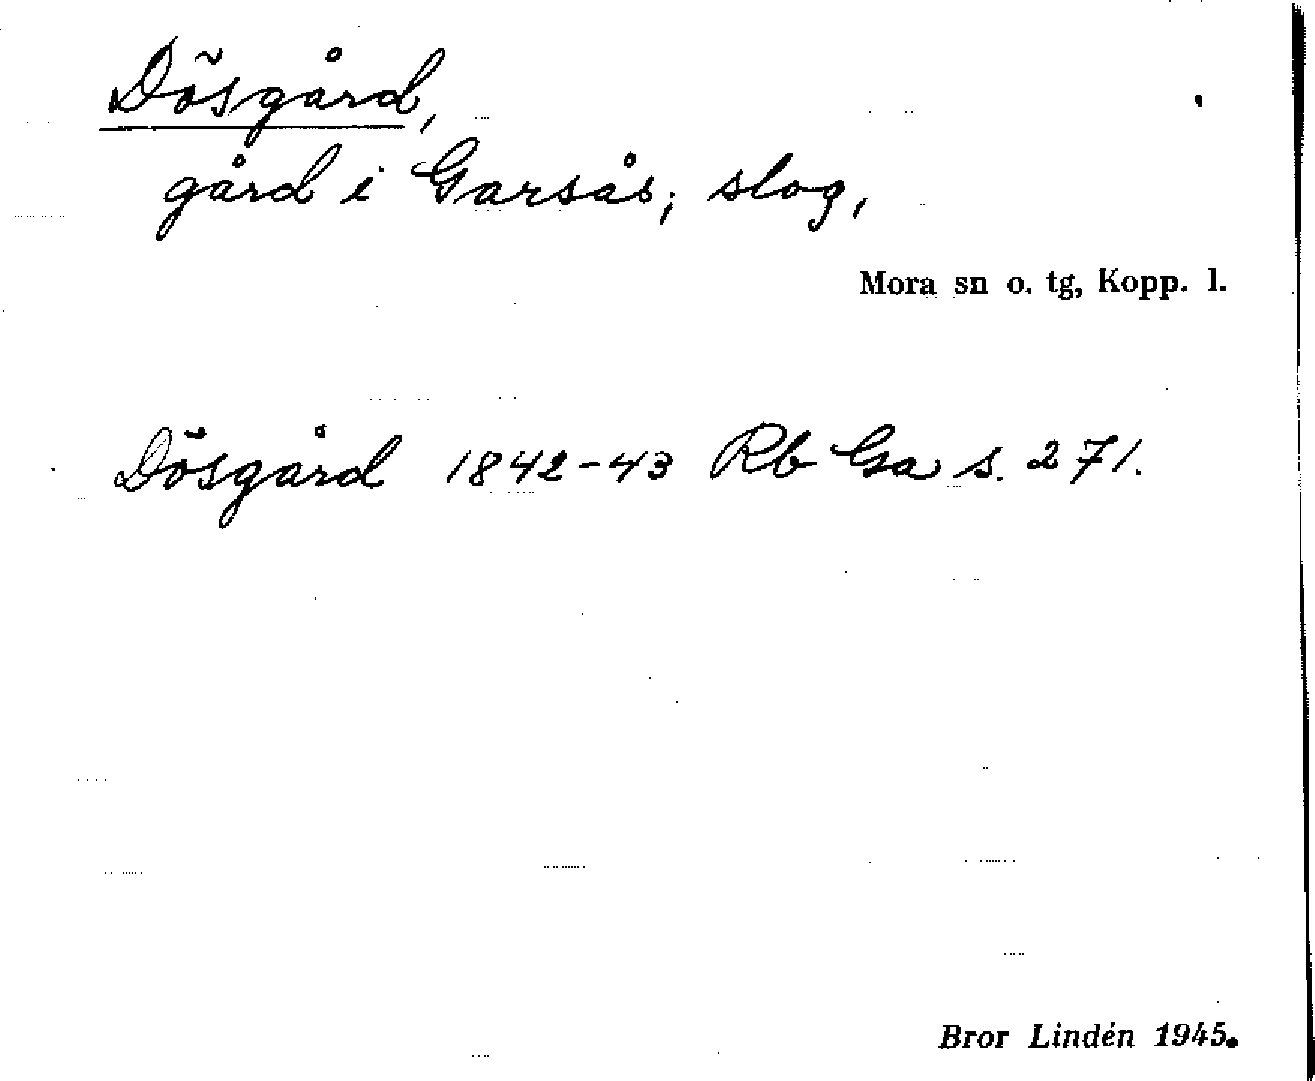 Dösgård,
gård i Garsås; slog,
Mora sn o. tg, Kopp. l.
Dösgård 1842-43 Rb Ga s. 271.
Bror Lindén 1945.